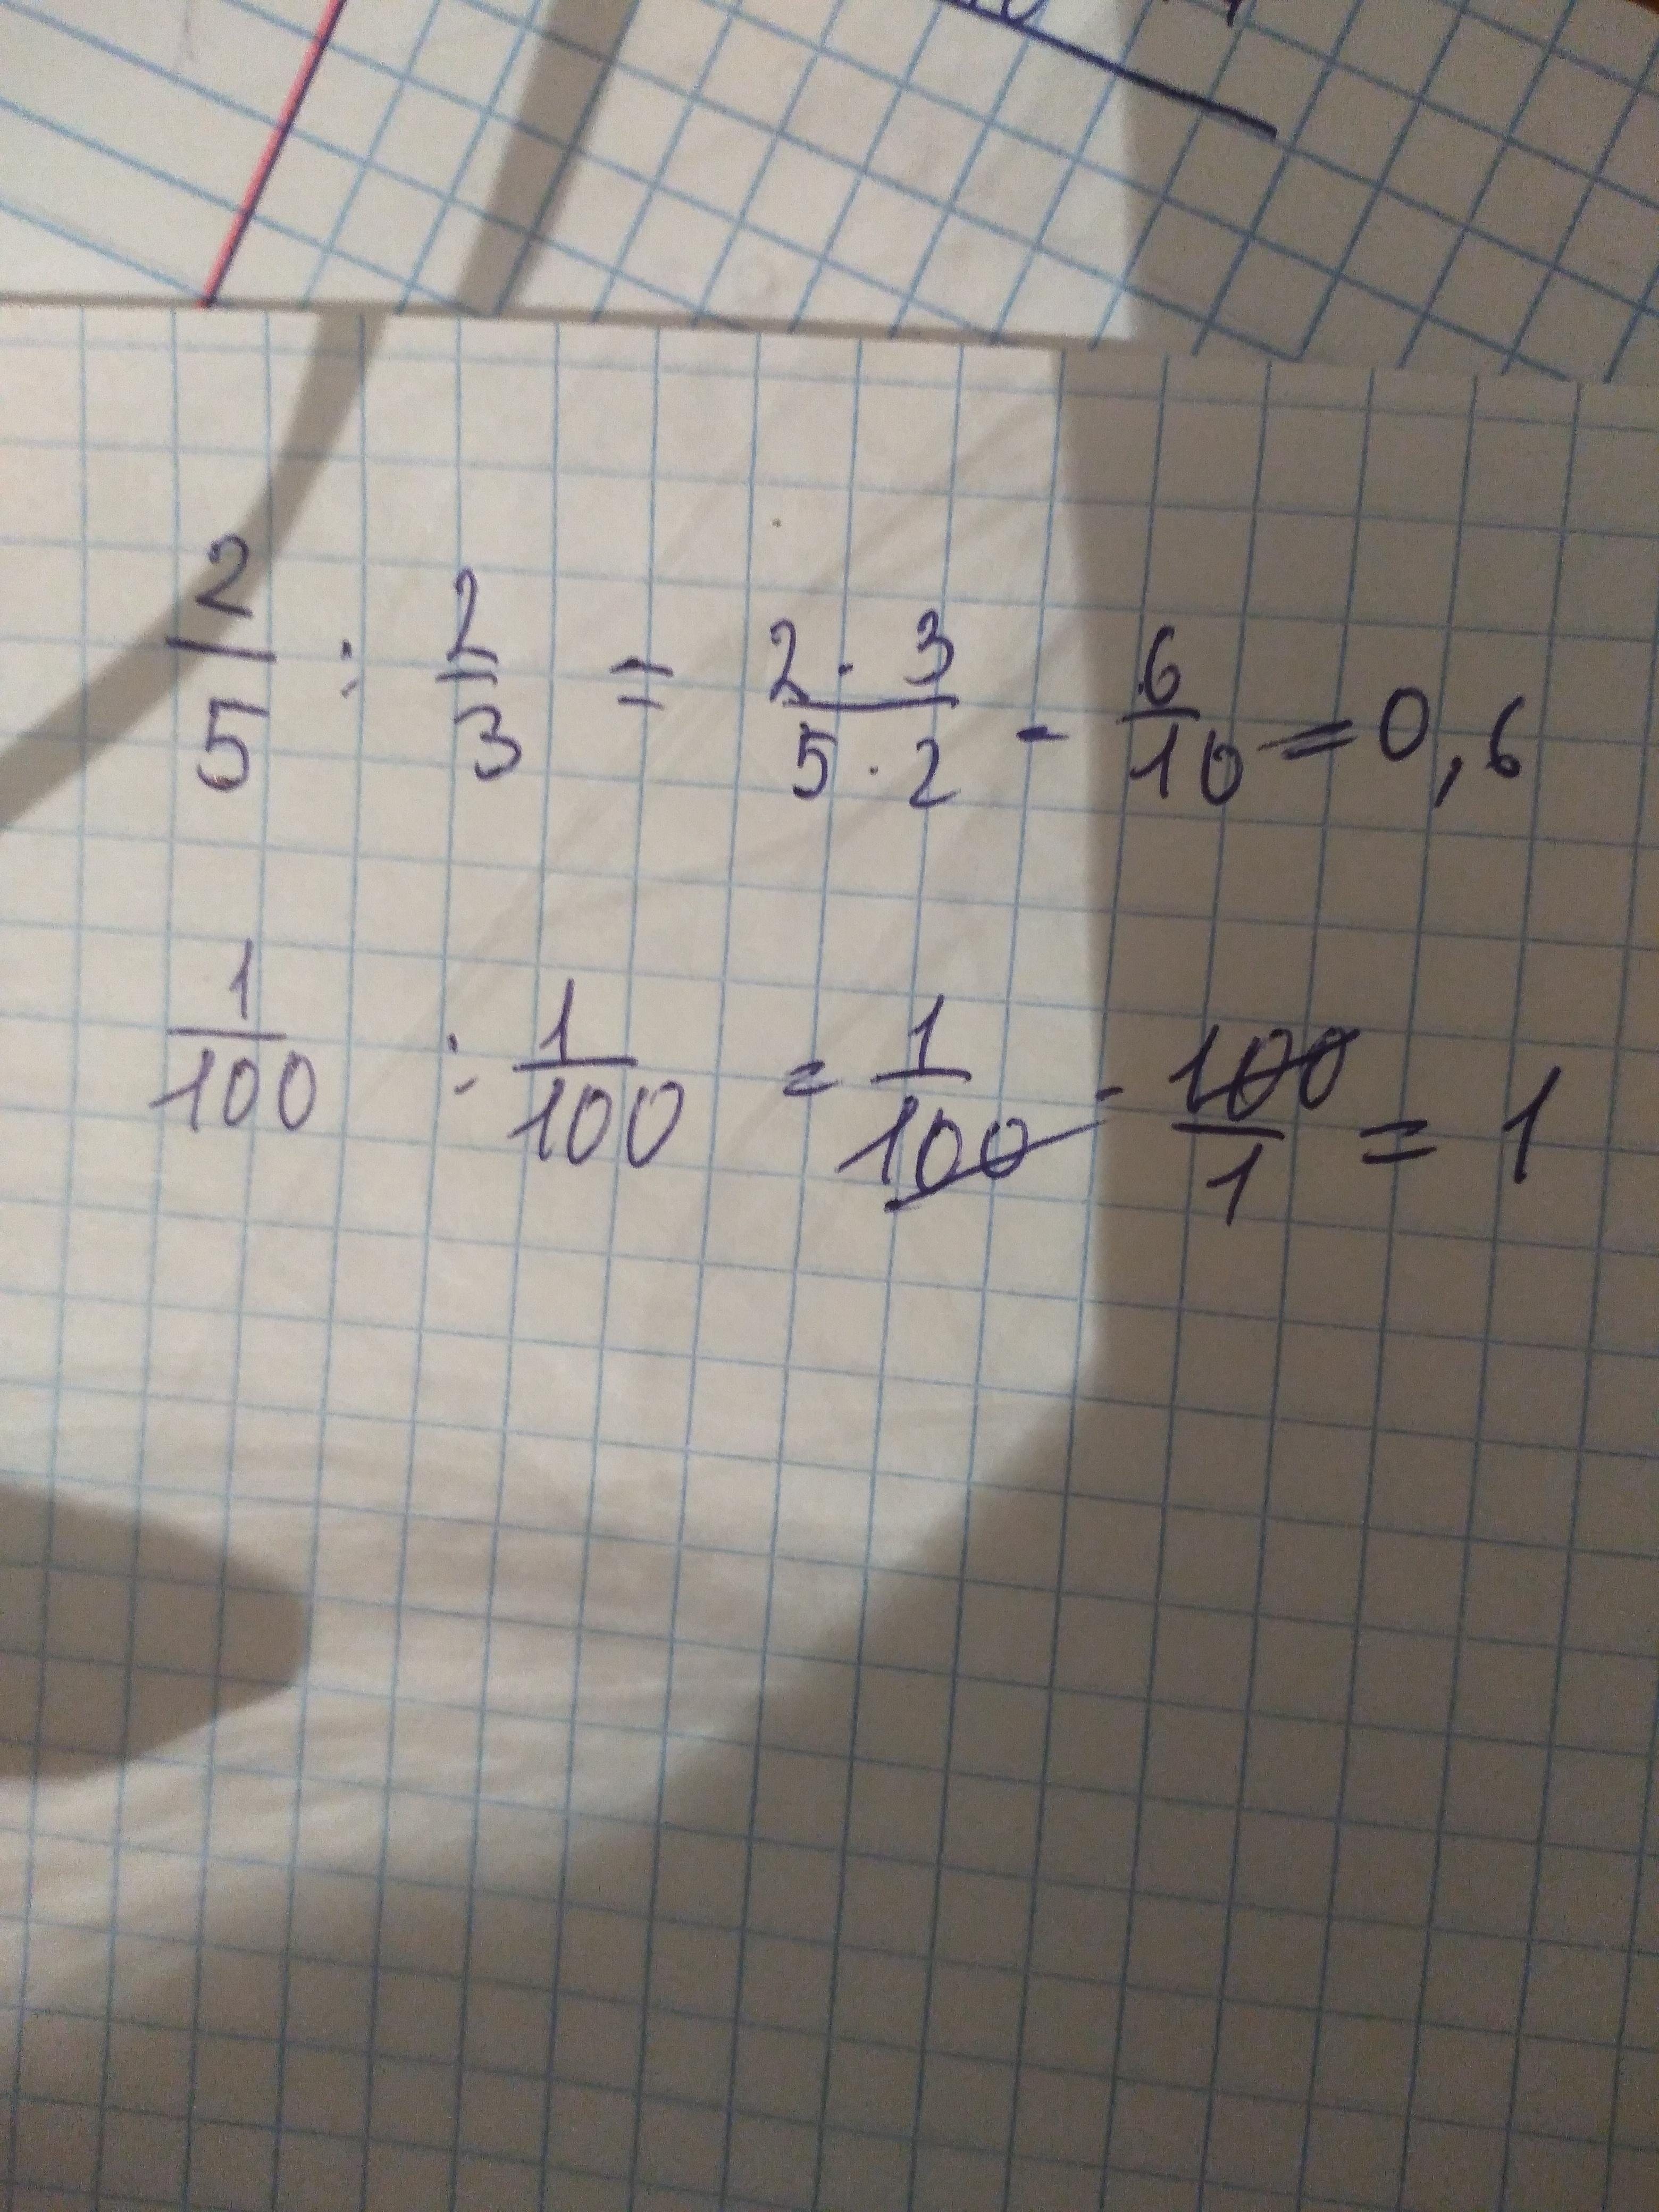 2/5 : 2/3 = 2·3/5·2 - 6/10 = 0,6
1/100 : 1/100 = 1/100 · 100/1 = 1